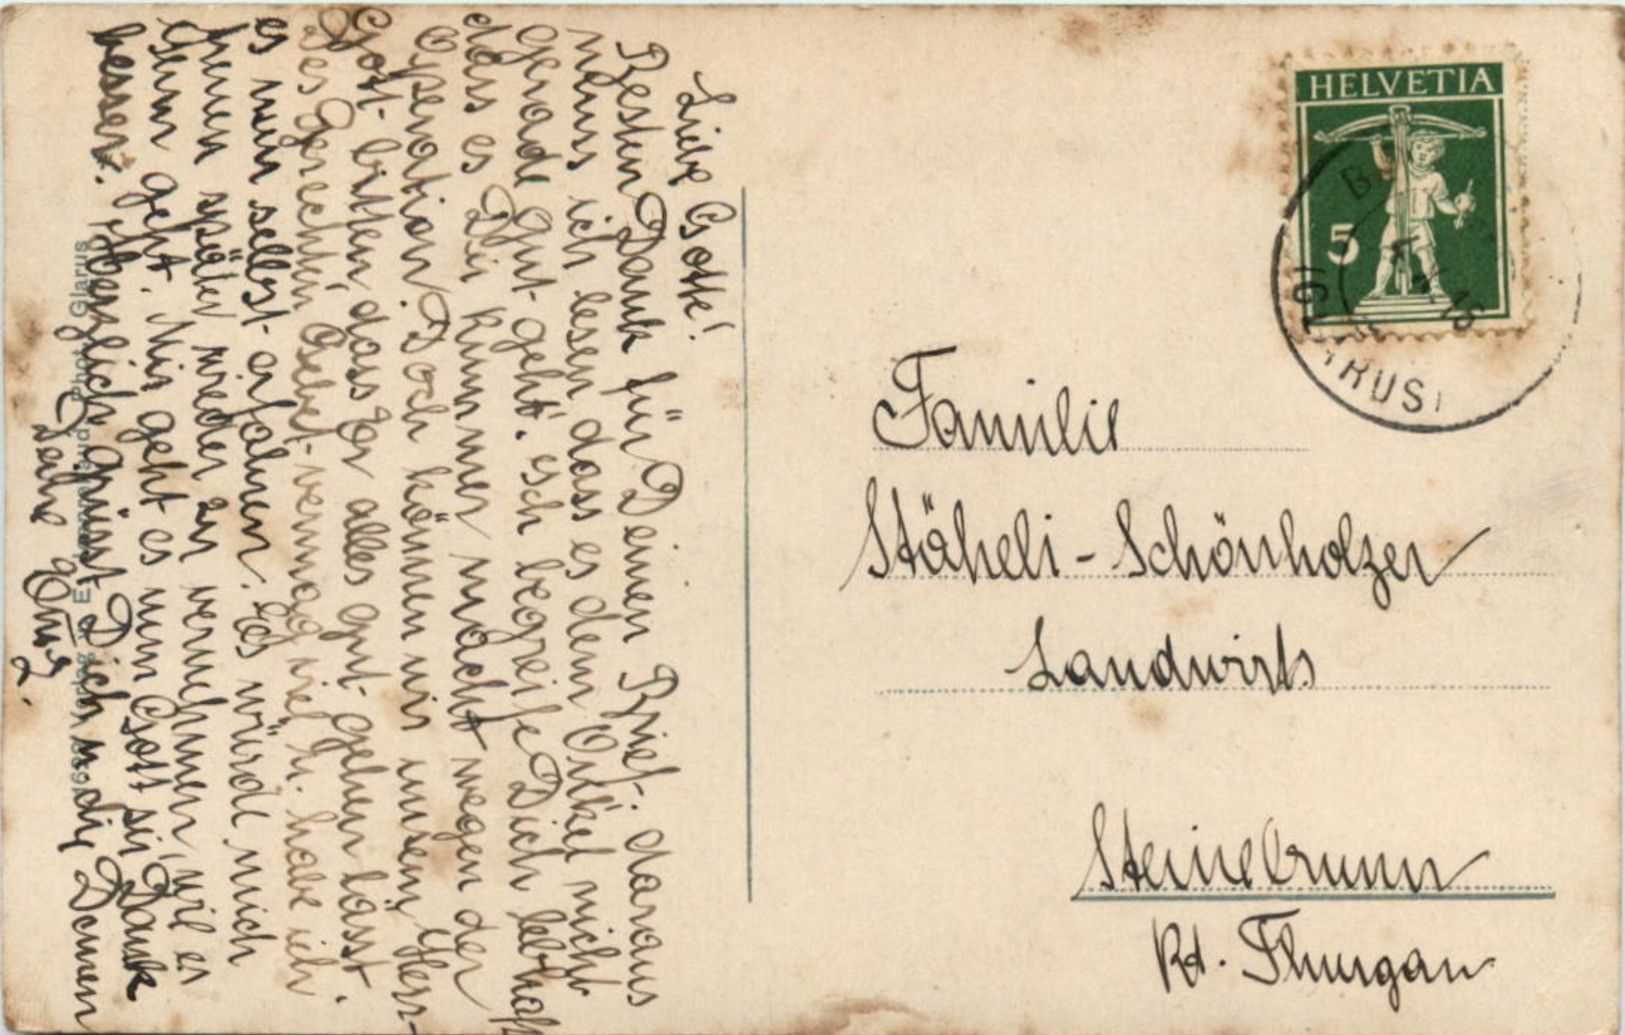 Liebe Gotte!
Besten Dank für Deinen Brief. daraus
muss ich lesen dass es dem Onkel nicht
gerade gut geht. ich begreife Dich lebhaft
dass es Dir kummer macht wegen der
Operation. Doch können wir unsern Herr-
Gott bitten, dass Er alles gut gehen lässt.
des Gerechten Gebet vermag viel h. habe ich
es nun selbst erfahren. Es würde mich
freuen später wieder zu vernehmen, wie es
Ihm geht. Mir geht es nun Gott sei Dank
besser. Herzlich grüsst Dich u die Deinen
Deine
Photo. Glarus
HELVETIA
5
Familie
Stäheli-Schönholzer
Landwirts
Steinebrunn
Kt. Thurgau